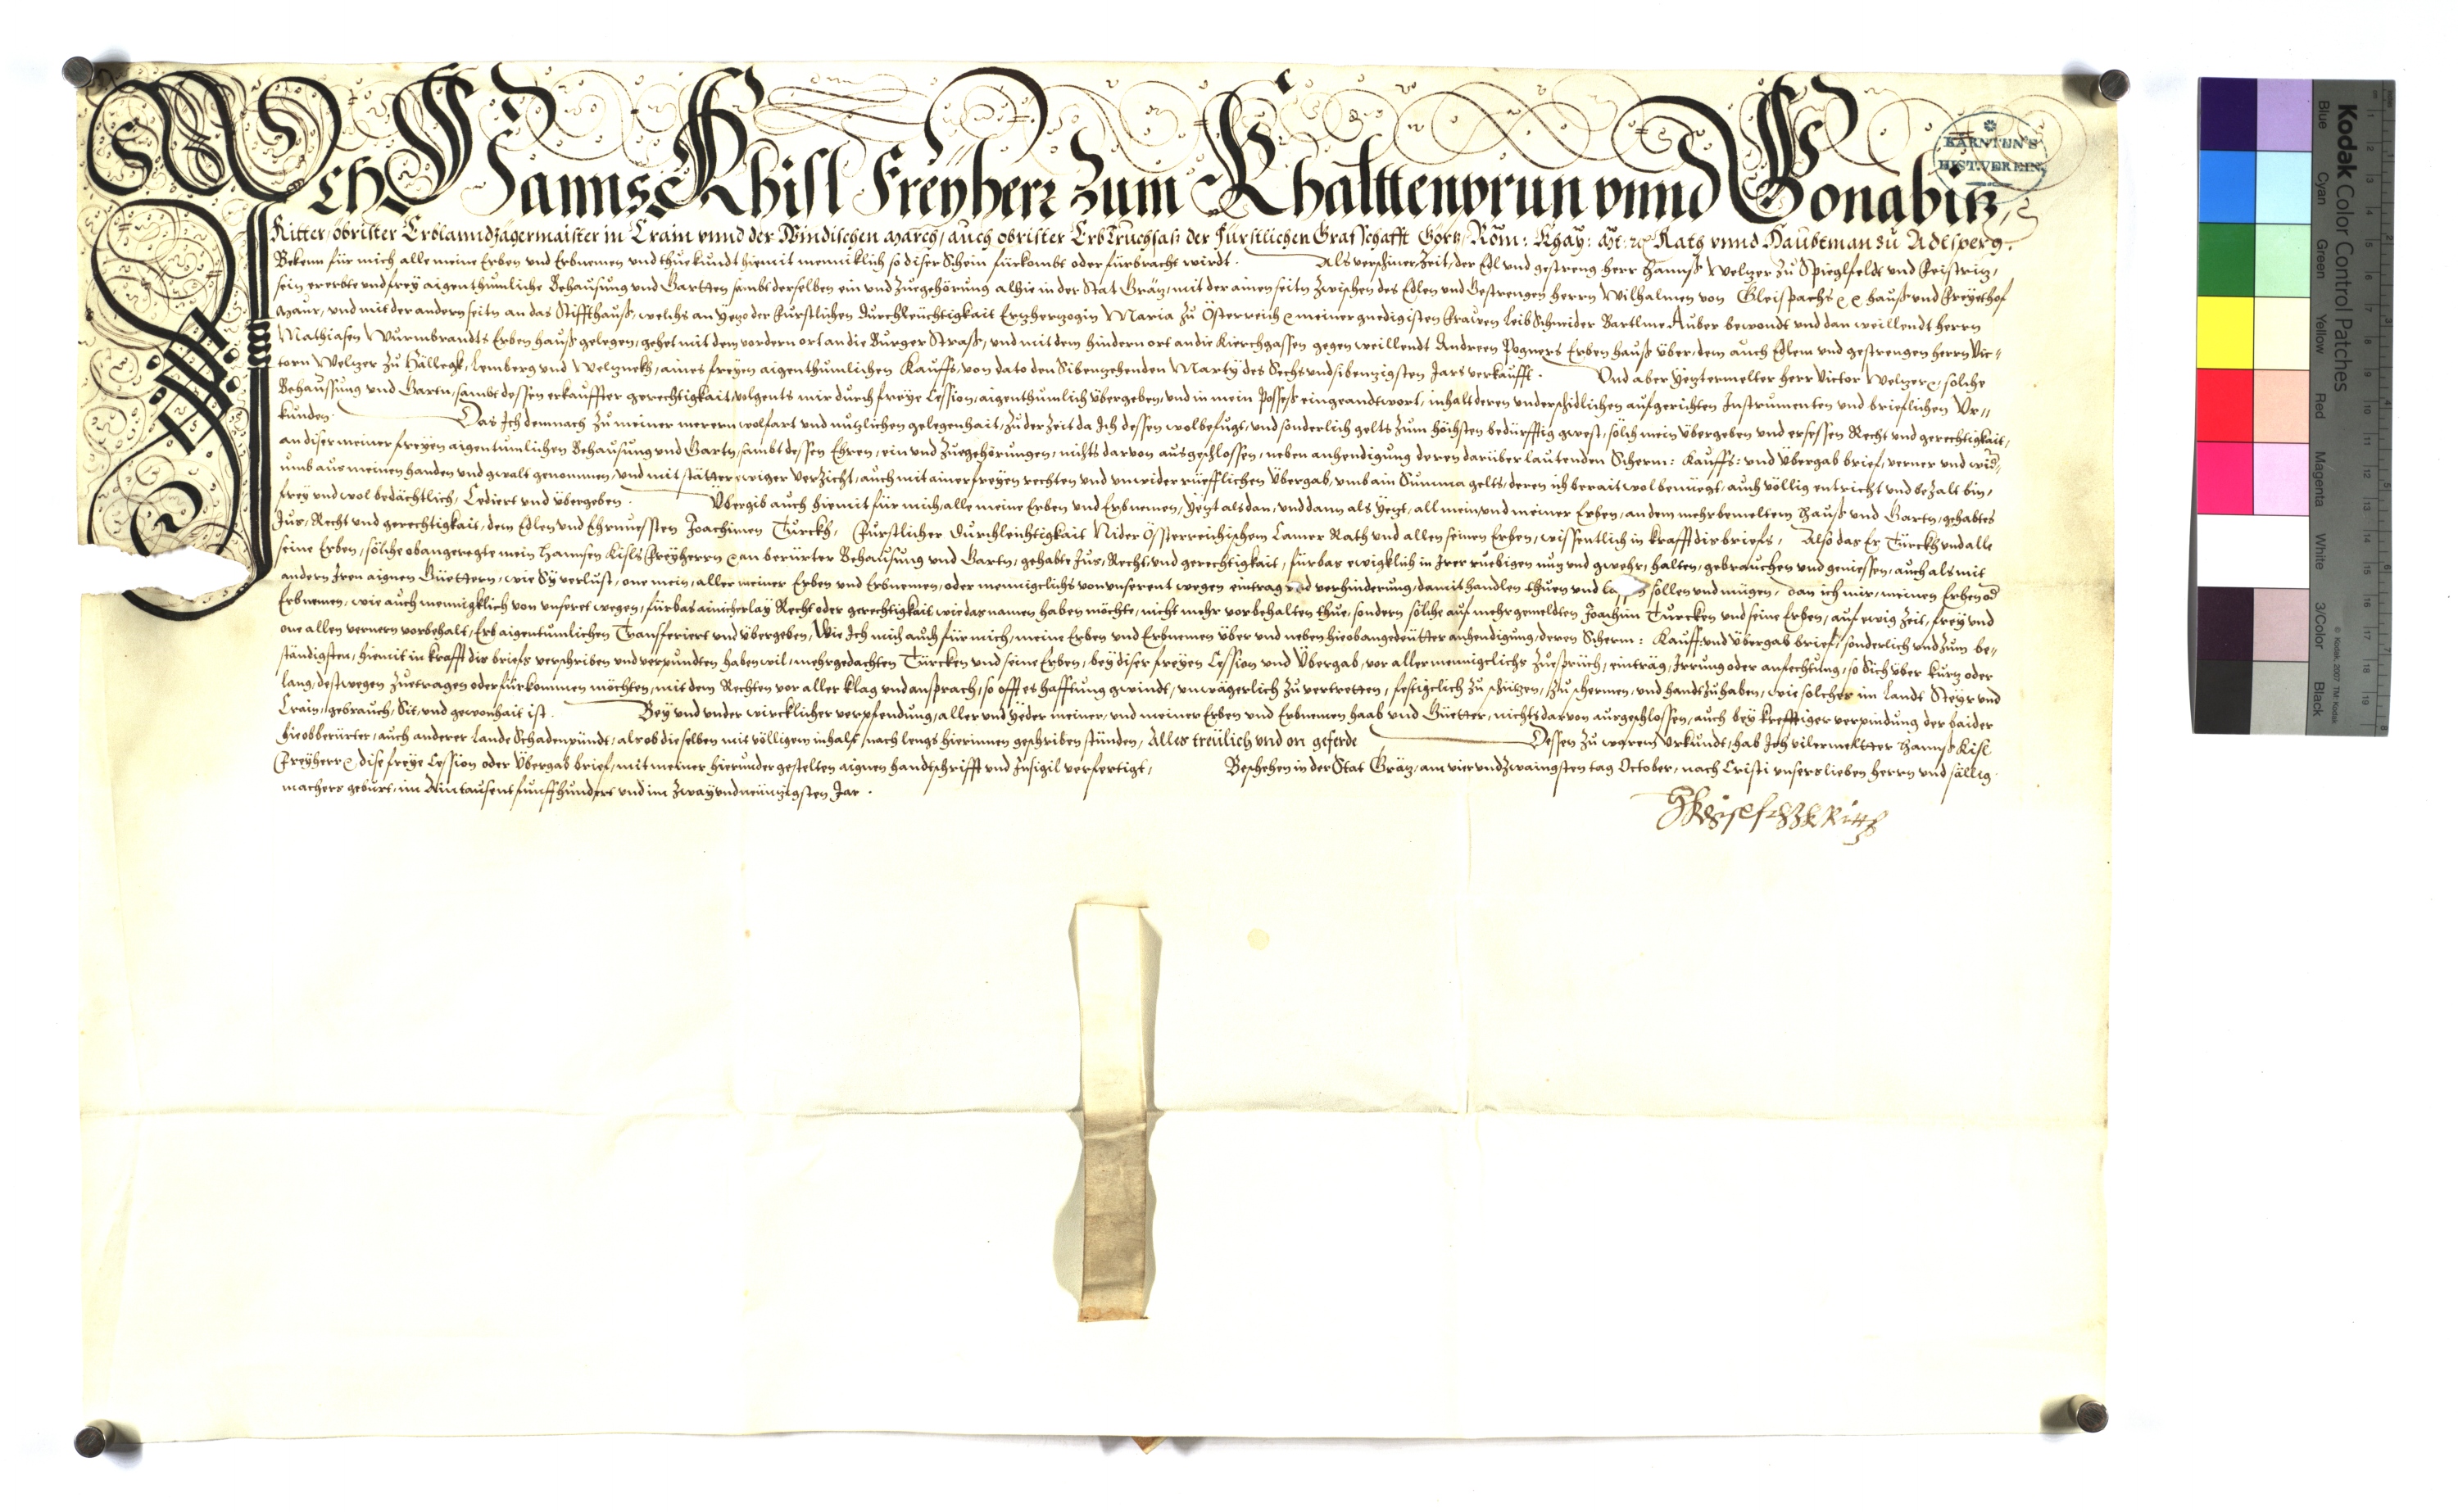 Ich Hanns Khisl Freyherr zum Khalttenprun vnnd Gonabitz,
KÄRNTEN'S
HIST. VEREIN
Ritter, obrister Erblanndtjägermaister in Crain vnnd der Windischen March, auch obrister ErbTruchsas der Fürstlichen Grafschafft Görtz, Röm: Khay: Mt: Rath vnnd Haubtman zu Adlsperg,
Bekenn für mich alle meine Erben vnd Erbnemen vnd thue kundt hiemit menniklich so diser Schein fürkombt oder fürbracht wirdt. Als verschiner Zeit, der Edl vnd gestreng Herr Hannß Weltzer zu Spieglfeldt vnd Feistritz,
sein ererbte vnd frey aigenthumliche Behausung vnd Gartten sambt derselben ein vnd zuegehörung alhie in der Stat Grätz, mit der ainen seitn zwischen des Edlen vnd Gestrengen Herrn Wilhalmen von Gleispachs hauß vnd Freythof
Maur, vnd mit der andern seitn an das Stiffthauß, welchs an Yetzo der Furstlichen Durchleüchtigkait Ertzhertzogin Maria zu Österreich meiner gnedigisten Frawen Leib Schneider Bartlme Auber bewondt vnd dan weillendt Herrn
Mathiasen Wurmbrandts Erben hauß gelegen, gehet mit dem vordern ort an die Burger Straß, vnd mit dem hindern ort an die Kierchgassen gegen weillendt Andreen Pogners Erben hauß über, dem auch Edlem vnd gestrengen Herrn Vic=
torn Weltzer zu Hallegk, Lemberg vnd Weltznekh, aines freyen aigenthumlichen Kauffs, von dato den Sibentzehenden Marty des Sechsvndsibenzigsten Jars verkaufft. Vnd aber Yetztermelter Herr Victor Weltzer, solche
Behaussung vnd Gartn, sambt dessen erkauffter gerechtigkait, volgents mir durch freye Cession, aigenthumlich übergeben, vnd in mein Posseß eingeandtwort, inhalt deren vnderschidlichen aufgerichten Instrumenten vnd brieflichen Vr=
kunden. Das Ich demnach zu meiner merern wolfart vnd nutzlichen gelegenhait, zu der zeit da Ich dessen wol befuegt, vnd sonderlich gelts zum höchsten bedürfftig gwest, solch mein übergeben vnd ersessen Recht vnd gerechtigkait,
an diser meiner freyen aigentumlichen Behausung vnd Gartn, sambt dessen Ehren, ein vnd zuegehörungen, nichts darvon ausgeschlossen, neben anhendigung deren darüber lautenden Scherm: Kauffs: vnd Übergab brief, verner vnd wid
umb aus meinen handen vnd gwalt genommen, vnd mit stätter ewiger verzicht, auch mit ainer freyen rechten vnd vnwiderrüefflichen Übergab, umb ain Summa gelts, deren ich berait wol benüegt, auch völlig entricht vnd bezalt bin,
frey vnd wolbedächtlich, Cediert vnd übergeben. Übergib auch hiemit für mich, alle meine Erben vnd Erbnemen, Yetzt als dan, vnd dann als Yetzt, all mein, vnd meiner Erben, an dem mehrbemeltem Hauß vnd Gartn, gehabtes
Jus, Recht vnd gerechtigkait, dem Edlen vnd Ehrnuessten Joachimen Türckh, Furstlicher Durchleichtigkait Nider Össterreichischem Camer Rath vnd allen seinen Erben, wissentlich in krafft dis briefs, Also das Er Türckh vnd alle
seine Erben, sölche obangeregte mein Hannsen Kisls Freyherrn an berürter Behausung vnd Gartn, gehabte Jus, Recht, vnd gerechtigkait, fürbas ewigklich in Irer ruebigen nutz vnd gwehr, halten, gebrauchen vnd geniessen, auch als mit
andern Iren aignen Güettern, wie Sy verlust, one mein, aller meiner Erben vnd Erbnemen, oder mennigclichs von vnsernt wegen eintrag vnd verhinderung, damit handlen thuen vnd sollen vnd mügen, dan ich mir, meinen Erben od
Erbnemen, wie auch mennigklich von vnsert wegen, fürbas ainicherlay Recht oder gerechtigkait wie das namen haben möchte, nicht mehr vorbehalten thue, sondern sölche auf mehrgemeldten Joachim Türcken vnd seine Erben, auf ewig zeit, frey vnd
one allen vernern vorbehalt, Erb aigentumlichen Transferiert vnd übergeben, Wie Ich mich auch für mich, meine Erben vnd Erbnemen über vnd neben hieobangedeütter anhendigung, deren Scherm: Kauff: vnd Übergab brief, sonderlich vnd zum be=
ständigsten, hiemit in krafft dis briefs verschriben vnd verpundten haben wil, mehrgedachten Türcken vnd seine Erben, bey diser freyen Cession vnd Übergab, vor allermennigclichs Zuesprüch, einträg, Irrung oder anfechtung, so sich über kurtz oder
lang, destwegen zuetragen oder fürkommen möchten, mit dem Rechten vor aller klag vnd ansprach, so offt es hafftung gwindt, vnwägerlich zu vertretten, festigclich zu schützen, zu schermen, vnd handtzuhaben, wie solcher im Landt Steyr vnd
Crain, gebrauch, Sit, vnd gewonhait ist. Bey vnd vnder wircklicher verpfendung, aller vnd Yeder meiner, vnd meiner Erben vnd Erbnemen haab vnd Güetter, nichts darvon ausgeschlossen, auch bey krefftiger verpindung der baider
hieobberürter, auch anderer Lande Schadenpündt, als ob dieselben mit völligem inhalt, nach lengs hierinnen geschriben stünden, Alles treülich vnd on geferde Dessen zu warem Vrkundt, hab Ich vilermeltter Hannß Kisl
Freyherr, dise freye Cession oder Übergab brief, mit meiner hierunder gestelten aignen handtschrifft vnd Insigil verfertigt, Beschehen in der Stat Grätz, am vierundzwaingsten tag October, nach Cristi vnsers lieben Herrn vnd sällig
machers geburt, im Aintausent fünffhundert vnd im zwayvndneünzigsten Jar.
Kodak Color Control Patches
Blue Cyan Green Yellow Red Magenta White 3/Color Black
© Kodak, 2007 TM: Kodak